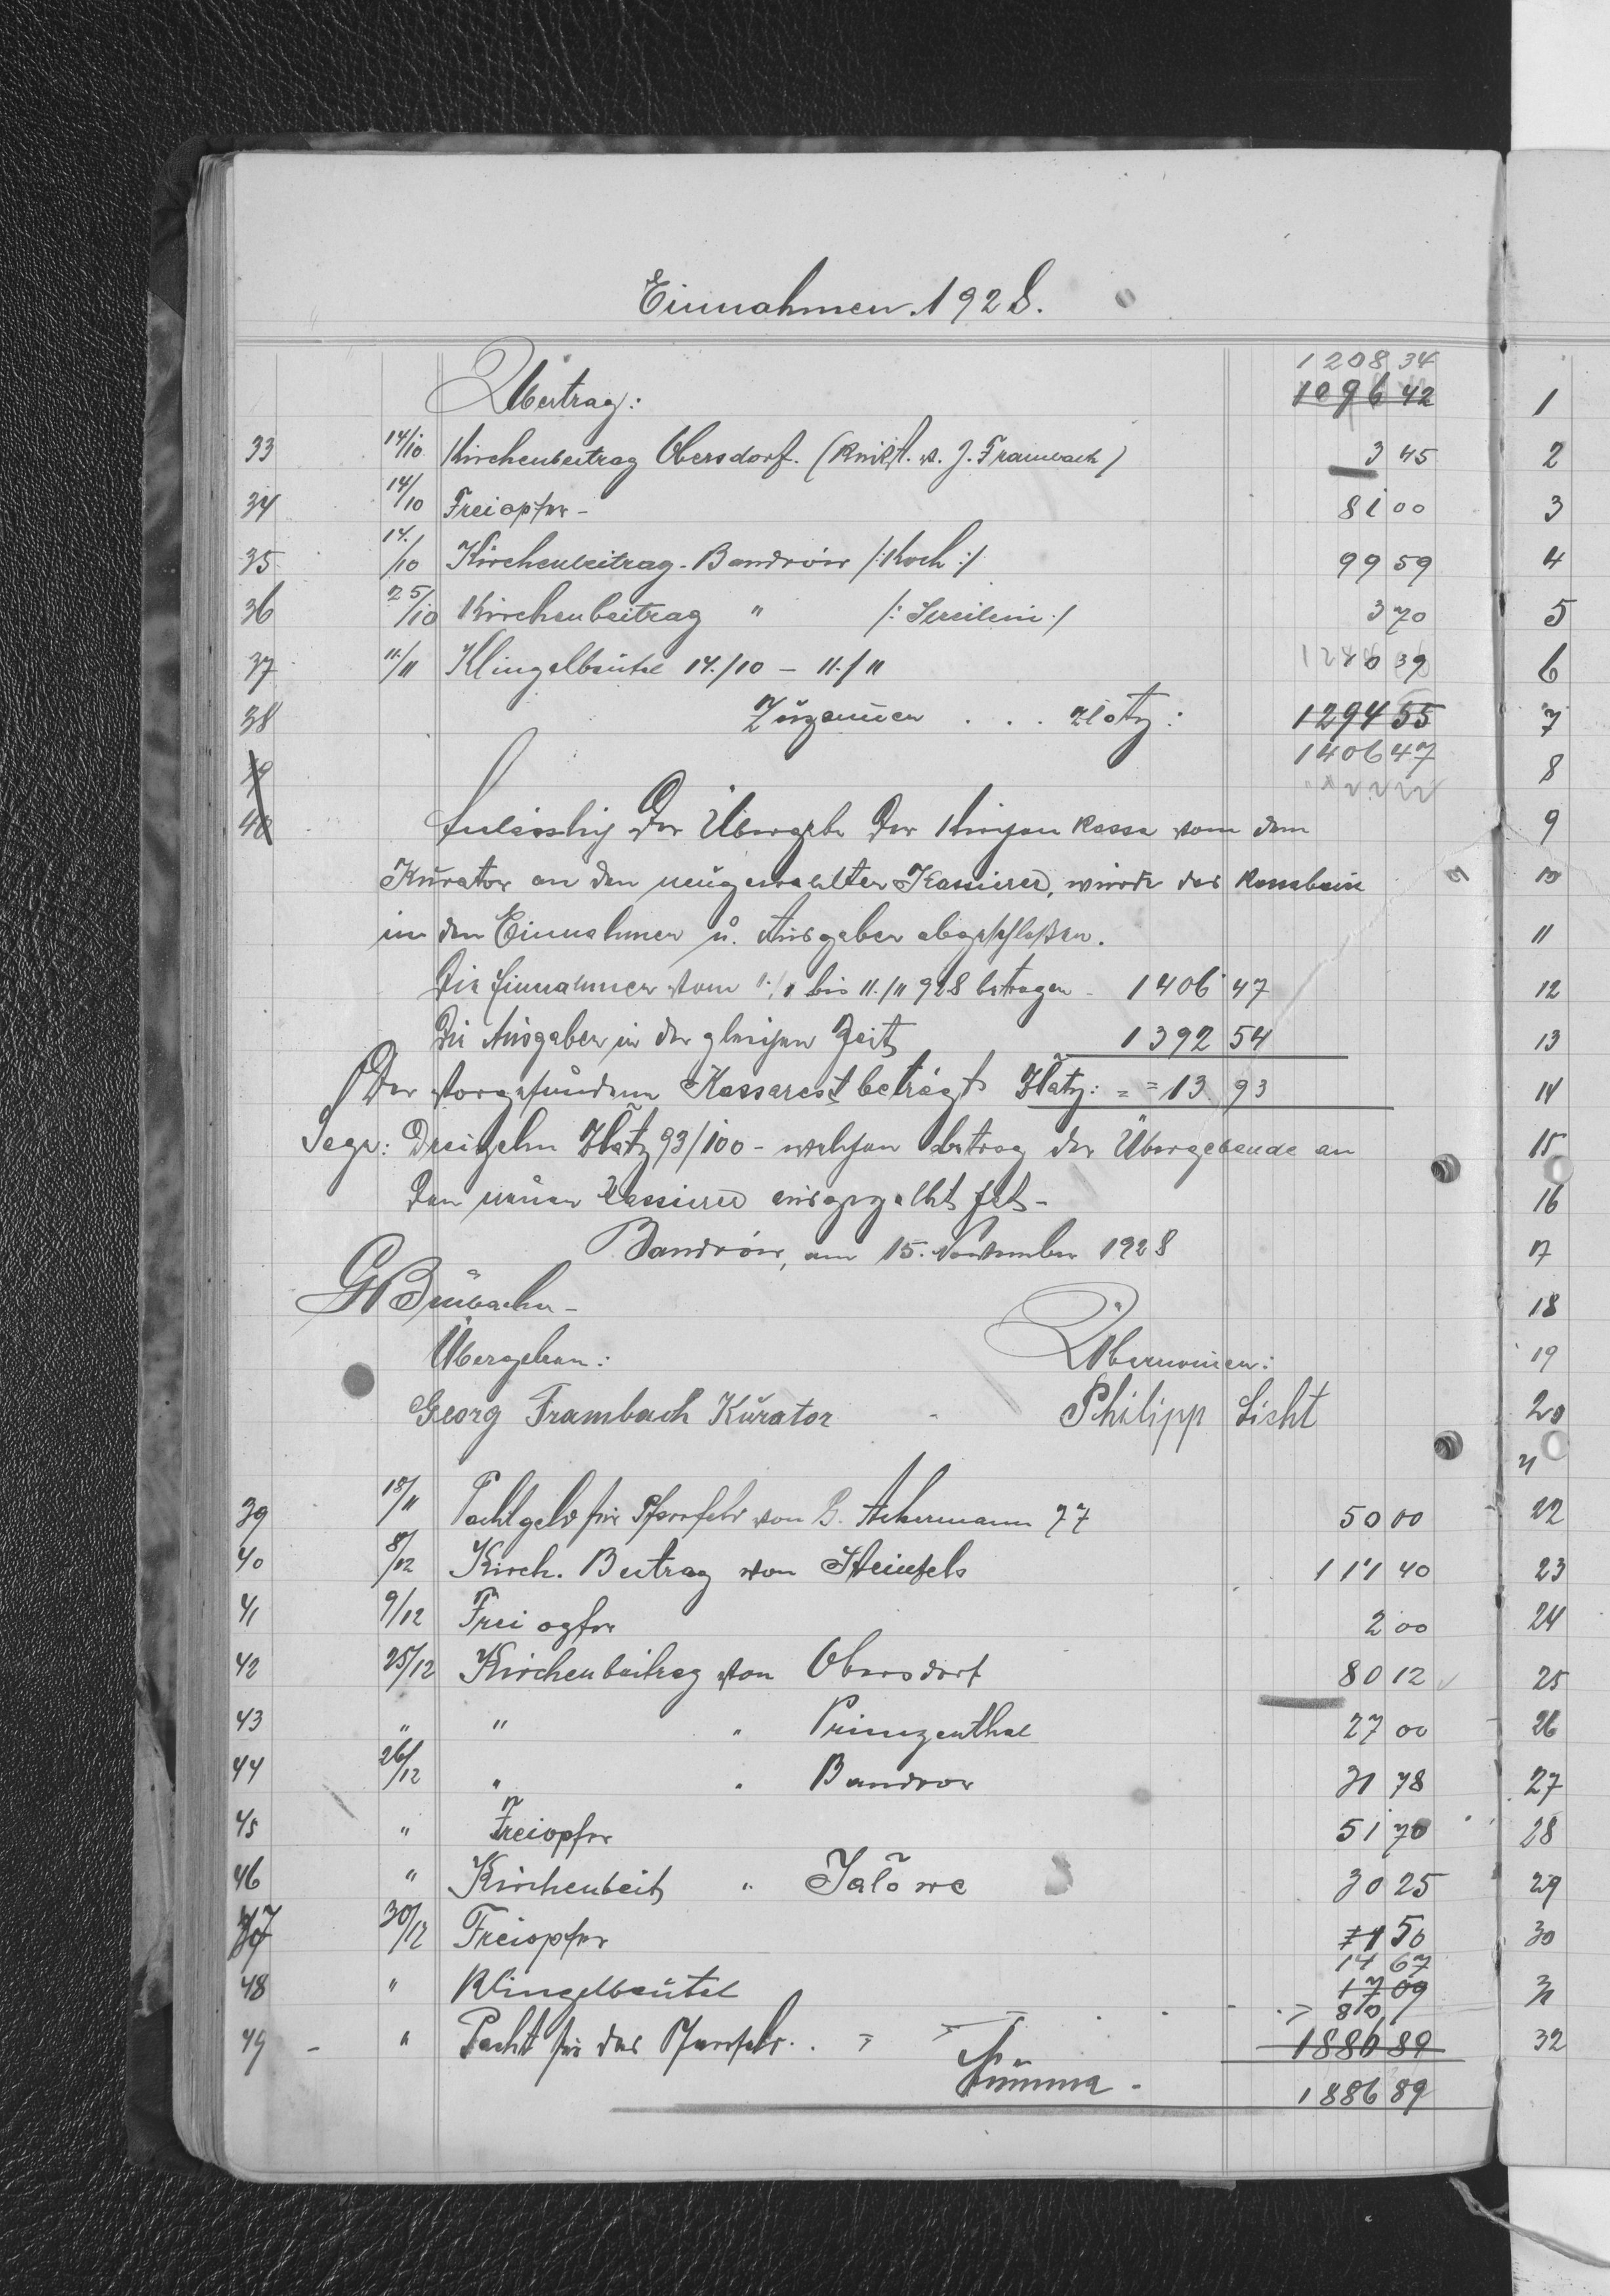 Einnahmen. 1928.
1208 34
Übertrag: 1096 42
33 14/10 Kirchenbeitrag Obersdorf. ( v. J. Frambach) 3 45
34 14/10 Freiopfer - 81 00
35 14./10 Kirchenbeitrag - Bandrów /: Koch :/ 99 59
36 25/10 Kirchenbeitrag " 3 70
37 11./11 Klingelbeutel 14./10 - 11./11 10 39
38 Zusammen . . . zloty: 1294 55
1406 47
39
40 Anlässlich der Übergabe der Kirchen Kassa vom dem
Kurator an den neugewählten Kassierer, wurde das Kassabuch
in den Einnahmen u. Ausgaben abgeschloßen.
Die Einnahmen vom 1./1 bis 11./11 928 betragen - 1406 47
Die Ausgaben in der gleichen Zeit 1392 54
Der vorgefundene Kassarest beträgt Zloty: = = 13 93
Sage: Dreizehn Zloty 93/100 - welchen Betrag der Übergebende an
den neuen Kassierer ausgezahlt hat -
Bandrów, am 15. November 1928
Übergeben: Übernommen:
Georg Frambach Kurator - Philipp Licht
39 18/11 Pachtgeld für Pfarrfeld von G. Ackermann 77 50 00
40 8/12 Kirch. Beitrag von Steinfels 111 40
41 9/12 Freiopfer 2 00
42 25/12 Kirchenbeitrag von Obersdorf 80 12
43 " " " Prinzenthal 27 00
44 26/12 " " Bandrow 31 78
45 " Freiopfer 51 70
46 " Kirchenbeit " Jalowe 30 25
47 30/12 Freiopfer 71 50
14 67
48 " Klingelbeutel 17 09
810
49 - " Pacht für das Pfarrfeld . . 1886 89
Summa - 1886 89
1
2
3
4
5
6
7
8
9
10
11
12
13
14
15
16
17
18
19
20
21
22
23
24
25
26
27
28
29
30
31
32